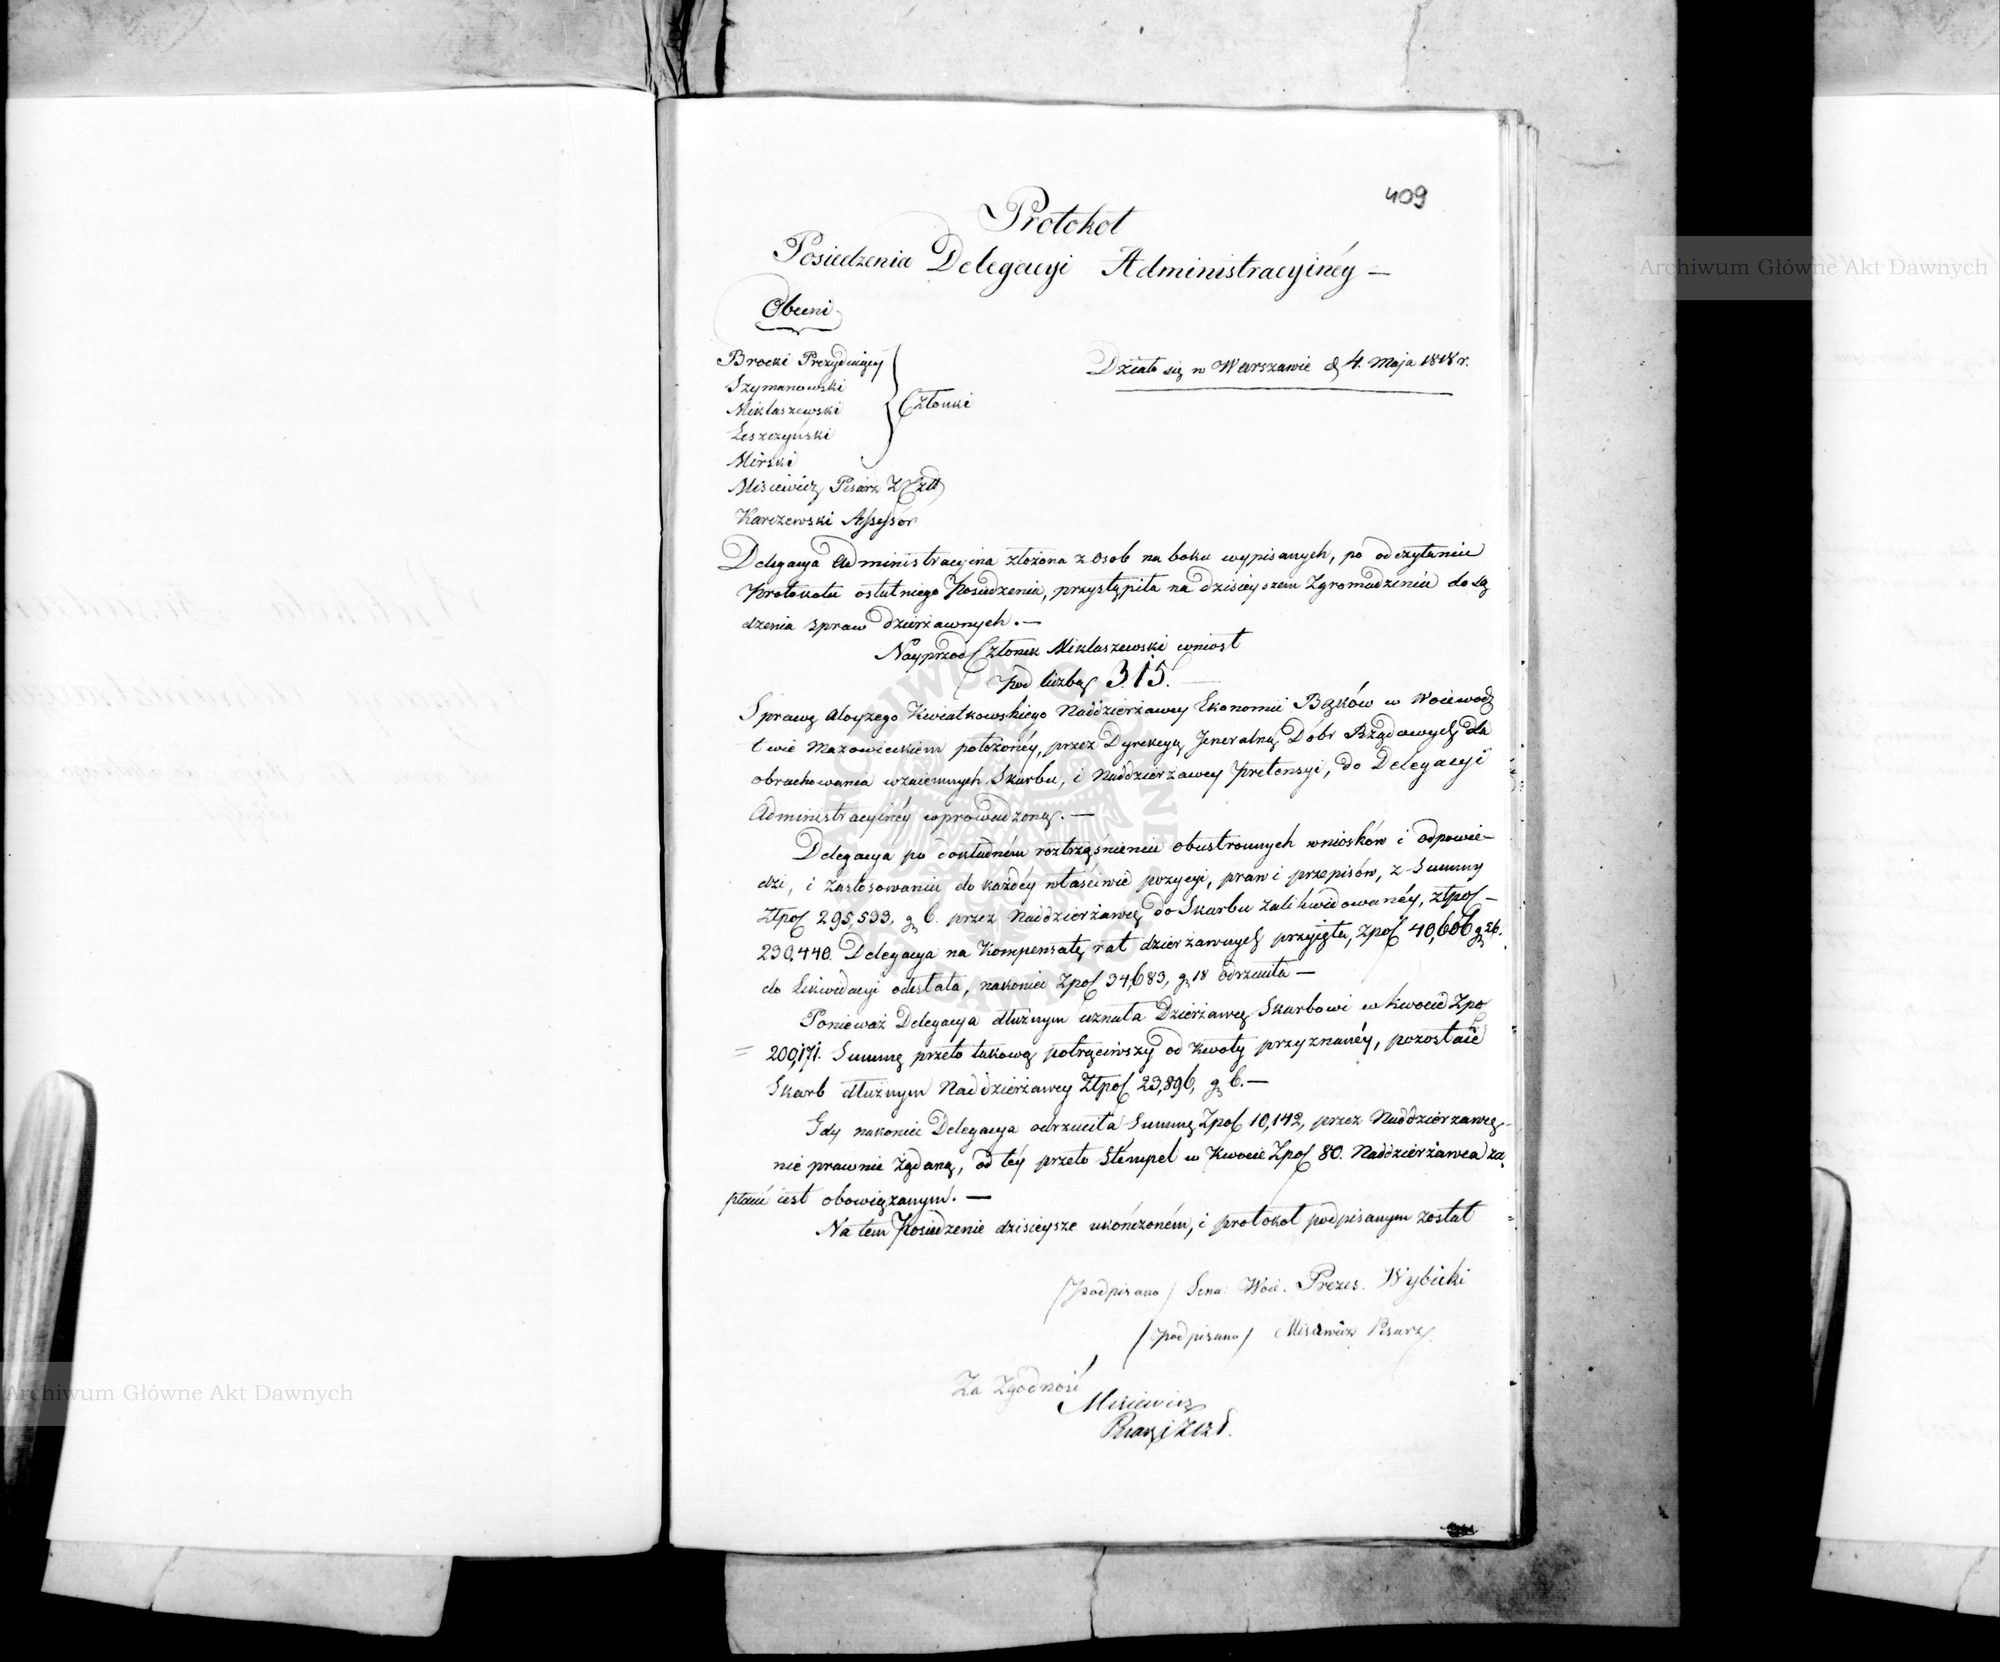 409
Protokół
Posiedzenia Delegacyi Administracyinéy —
Obecni
Brocki Prezyduiący
Szymanowski
Miklaszewski
Leszczyński
Mirski
Członki
Misiewicz Pisarz
Karczewski Assessor
Działo się w Warszawie d. 4. Maja 1818 r.
Delegacya Administracyina złożona z osob na boku wypisanych, po odczytaniu
Protokołu ostatniego Posiedzenia, przystąpiła na dzisieyszem Zgromadzeniu do są
dzenia spraw dzierżawnych. —
Nayprzod Członek Miklaszewski wniosł
pod liczbą 315.
Sprawę Aloyzego Kwiatkowskiego Naddzierżawcy Ekonomii Bąków w Wojewodz
twie Mazowieckiem położonéy, przez Dyrekcyą Jeneralną Dóbr Rządowych dla
obrachowania wzaiemnych Skarbu, i Naddzierżawcy pretensyi, do Delegacyi
Administracyinéy wprowadzoną. —
Delegacya po dokładném roztrząśnieniu obustronnych wniosków i odpowie-
dzi, i zastosowaniu do każdéy właściwie pozycyi, praw i przepisów, z Summy
Złpol 295,533. g 6. przez Naddzierżawcę do Skarbu zalikwidowanéy, złpol —
230,440. Delegacya na Kompensatę rat dzierżawnych przyięła, Zpol 40,606 g 26.
do Likwidacyi odesłała, nakoniec Zpol 34,683, g 18 odrzuciła —
Ponieważ Delegacya dłużnym uznała Dzierżawcę Skarbowi w kwocie Zpol
200,171. Summę przeto takową potrąciwszy od kwoty przyznanéy, pozostaie
Skarb dłużnym Naddzierżawcy Złpol 23,896, g 6. —
Gdy nakoniec Delegacya odrzuciła Summę Zpol 10,142, przez Naddzierżawcę
nie prawnie żądaną, od téy przeto Stempel w kwocie Zpol 80. Naddzierżawca za-
płacić iest obowiązanym. —
Na tem Posiedzenie dzisieysze ukończoném, i protokoł podpisanym został
/podpisano/ Sena: Woie. Prezes. Wybicki
/podpisano/ Misiewicz Pisarz
Za Zgodność
Misiewicz
Archiwum Główne Akt Dawnych
Archiwum Główne Akt Dawnych